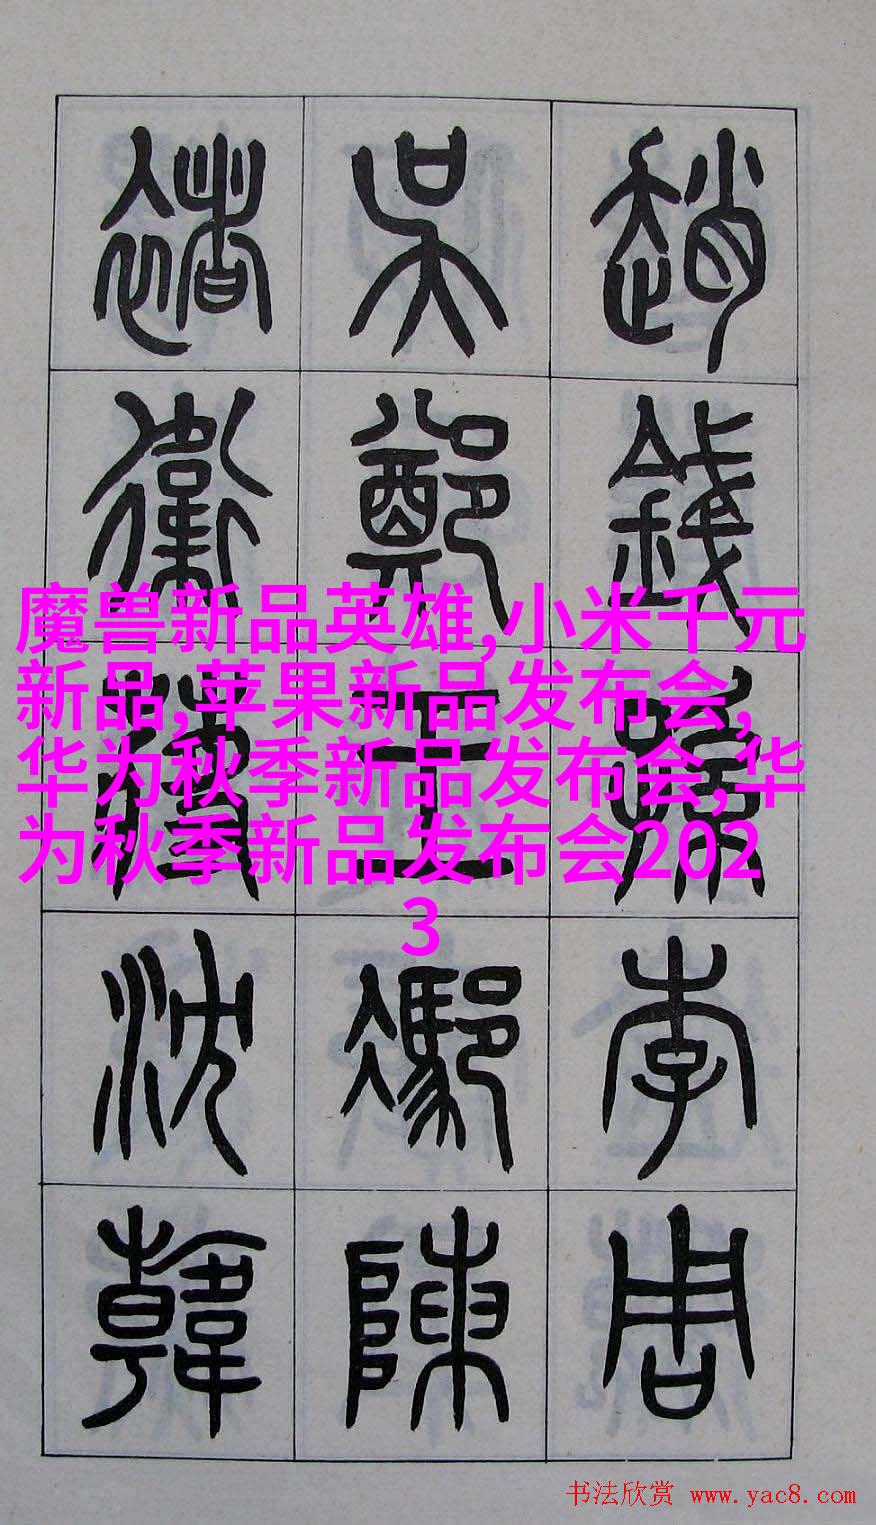 趙錢孫李周
吳鄭王馮陳
褚衛蔣沈韓
魔兽新品英雄,小米千元
新品,苹果新品发布会,
华为秋季新品发布会,华
为秋季新品发布会202
3
书法欣赏 www.yac8.com